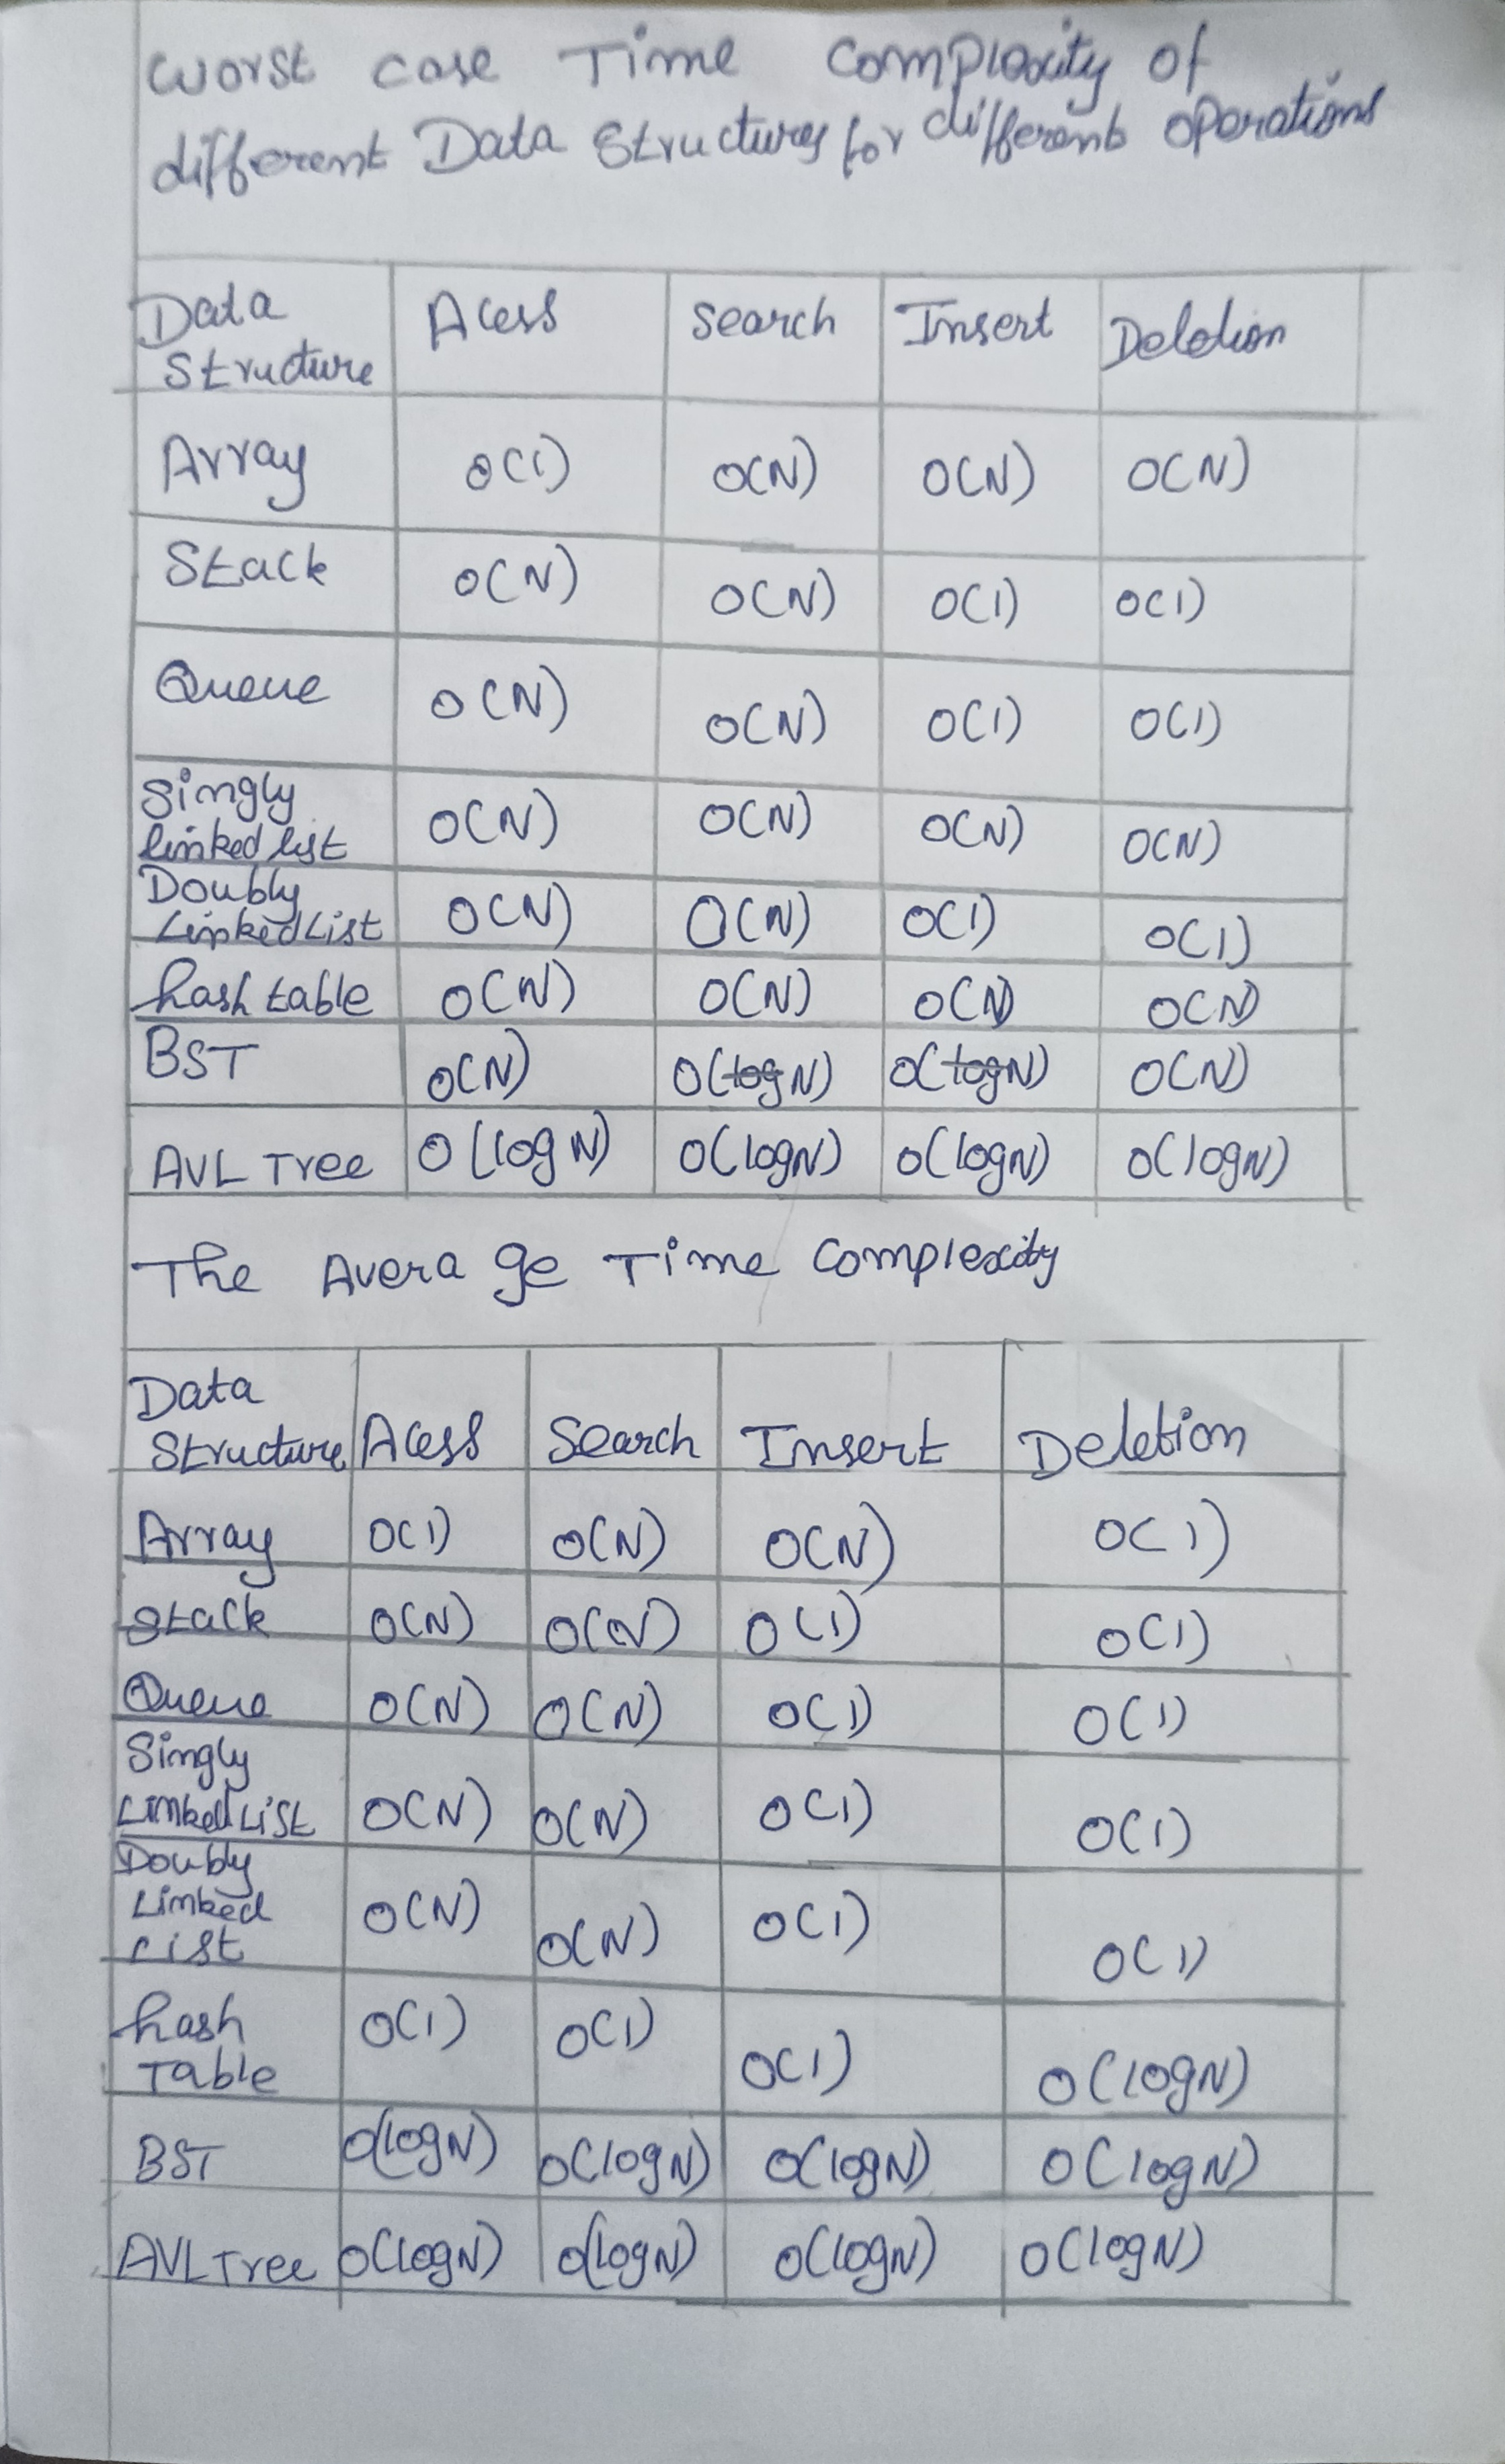 worst case Time Complexity of
different Data Structures for different operations
Data Structure Acess Search Insert Deletion
Array O(1) O(N) O(N) O(N)
Stack O(N) O(N) O(1) O(1)
Queue O(N) O(N) O(1) O(1)
Singly linked list O(N) O(N) O(N) O(N)
Doubly Linked List O(N) O(N) O(1) O(1)
hash table O(N) O(N) O(N) O(N)
BST O(N) O(log N) O(log N) O(N)
AVL Tree O(log N) O(log N) O(log N) O(log N)
The Average Time Complexity
Data Structure Acess Search Insert Deletion
Array O(1) O(N) O(N) O(1)
Stack O(N) O(N) O(1) O(1)
Queue O(N) O(N) O(1) O(1)
Singly Linked List O(N) O(N) O(1) O(1)
Doubly Linked List O(N) O(N) O(1) O(1)
hash Table O(1) O(1) O(1) O(log N)
BST O(log N) O(log N) O(log N) O(log N)
AVL Tree O(log N) O(log N) O(log N) O(log N)